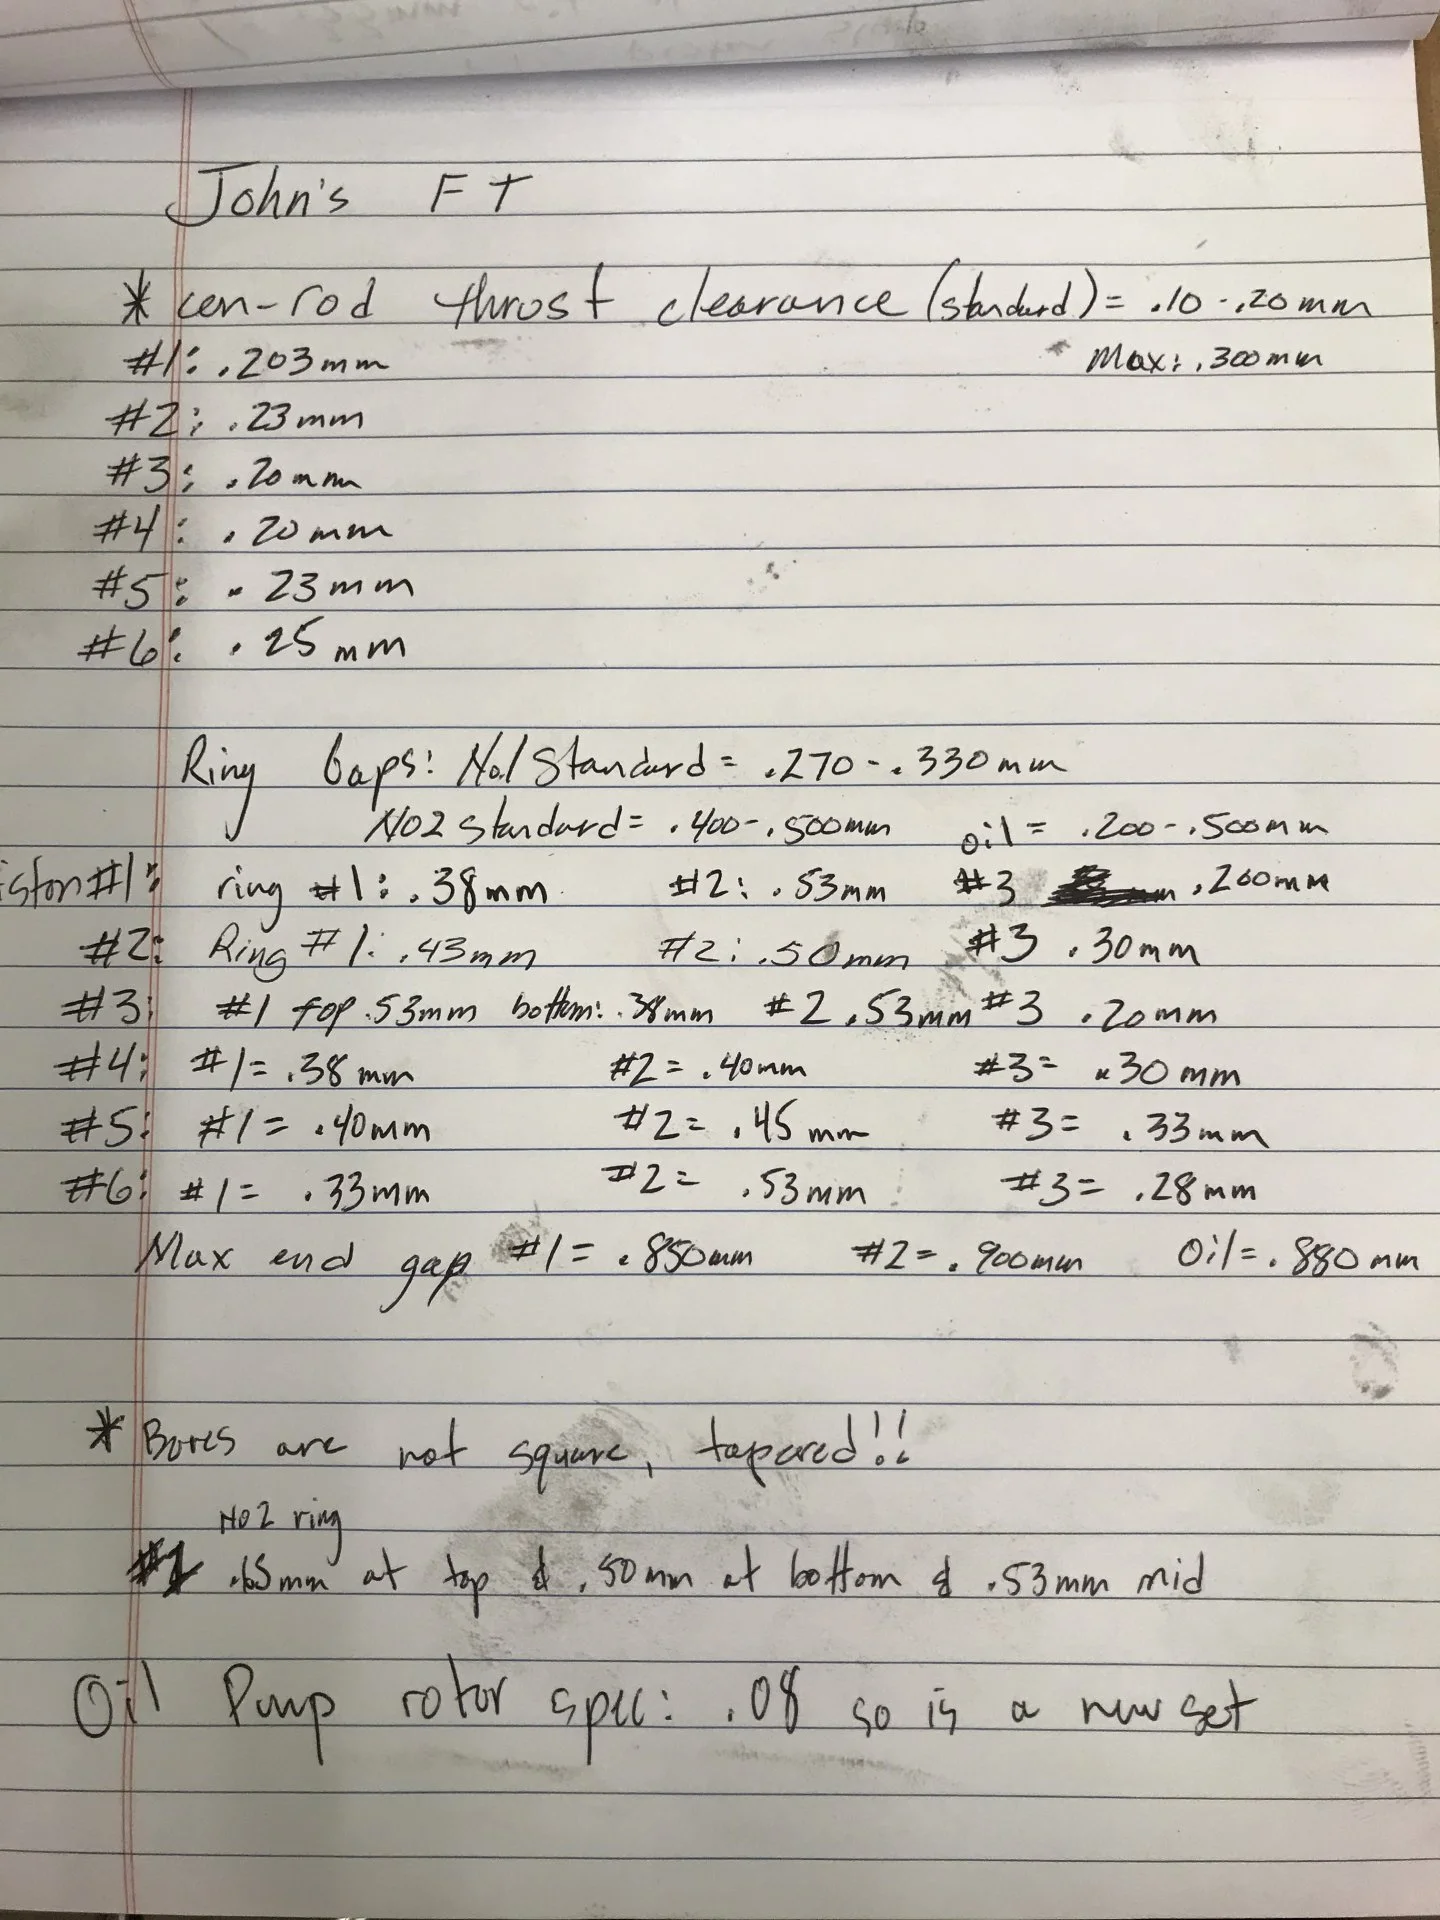 John's FT
* con-rod thrust clearance (standard) = .10-.20mm
#1: .203mm Max: .300mm
#2: .23mm
#3: .20mm
#4: .20mm
#5: .23mm
#6: .25mm
Ring Gaps: No1 Standard = .270-.330mm
NO2 standard = .400-.500mm oil = .200-.500mm
iston #1: ring #1: .38mm #2: .53mm #3 .200mm
#2: Ring #1: .43mm #2: .50mm #3 .30mm
#3: #1 top .53mm bottom: .38mm #2 .53mm #3 .20mm
#4: #1= .38mm #2= .40mm #3= .30mm
#5: #1= .40mm #2= .45mm #3= .33mm
#6: #1= .33mm #2= .53mm #3= .28mm
Max end gap #1= .850mm #2= .900mm Oil= .880mm
* Bores are not square, tapered!!
NO2 ring
.65mm at top & .50mm at bottom & .53mm mid
Oil Pump rotor spec: .08 so is a new set